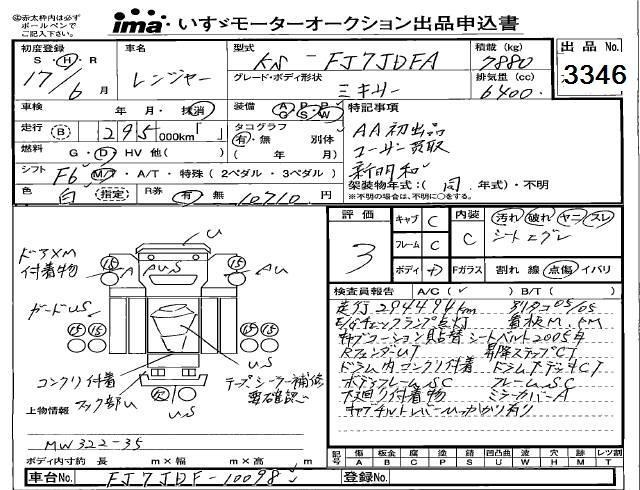 ㊟赤太枠内は必ず
ボールペンで
ご記入下さい。
ima いすゞモーターオークション出品申込書
初度登録 車名 型式 積載(kg) 出品No.
S・H・R レンジャー KK-FJ7JDFA 7880 3346
17/6月 グレード・ボディ形状 ミキサー 排気量(cc) 6400
車検 年・月・抹消 装備 A/G P/S P/W 特記事項
走行 B 295000km「 」 タコグラフ 有・無 別体 AA初出品
燃料 G・D・HV 他( ) ( 年 ) ユーザー買取
シフト F6 M/T・A/T・特殊(2ペダル・3ペダル) 新明和
架装物年式:(同.年式)・不明
※不明の場合は、年式に不明に○をする。
色 白 (指定) R券 有・無 10710円
評価 3 キャブ C 内装 C 汚れ 破れ ヤニ スレ
フレーム C シートエグレ
ボディ Fガラス 割れ 線 点傷 イバリ
検査員報告 A/C( ) B/T( )
走行294494km
E/Gチェックランプ点灯 看板M.KM
キャブコーション貼替 シートベルト2005年
RフェンダーUT 昇降ステップCT
ドラム内コンクリ付着 ドラムTデッキCT
ボディフレームSC フレームSC
下廻り付着物 ミラーカバーA
キャブチルトレバーひっかかり有り
ドアXM
付着物
ガードUS
U
AUS
AU
US
US
15 15
15 15 15 15
コンクリ付着
フック部U
テープシーラー補修
要石確認
上物情報
MW322-35
ボディ内寸約 長 m×幅 m×高 m
記号 傷 A 板金 B 腐 C 塗 P 錆 S 凹凸曲 U 波 W 穴 H 跡 M レツ割 T
車台No. FJ7JDF-10098 登録No.